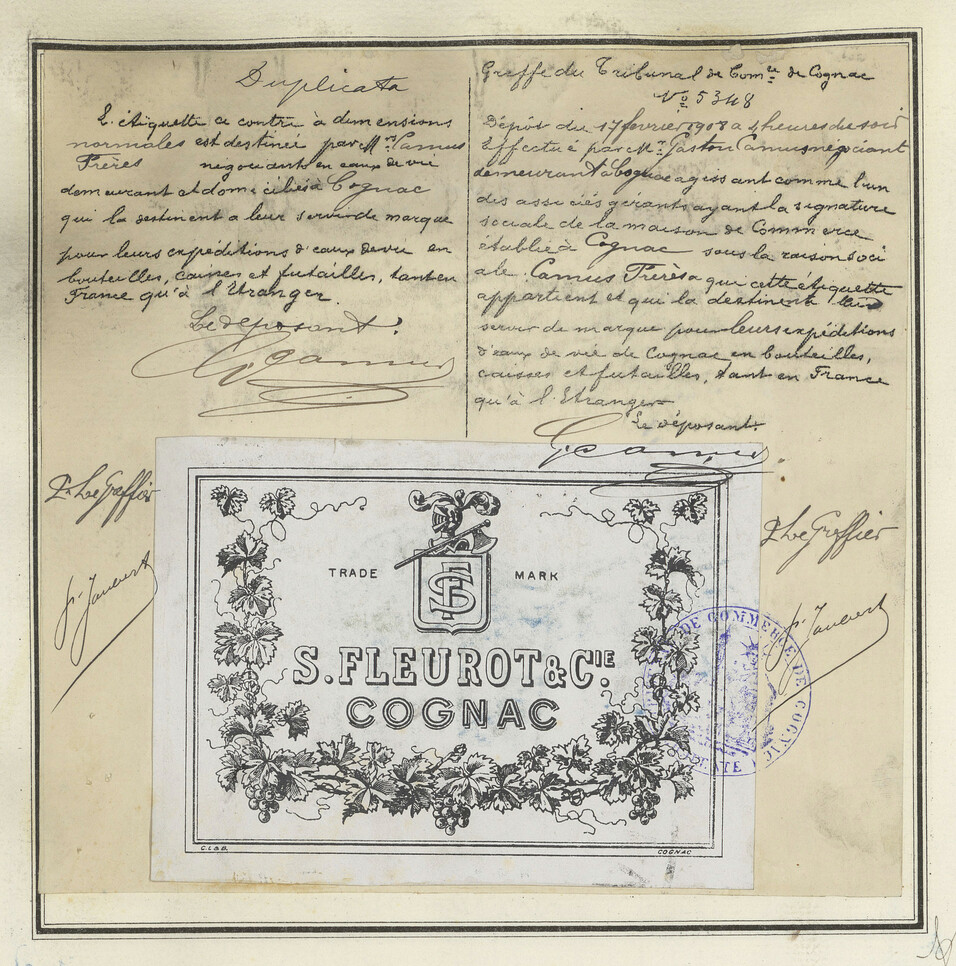 Duplicata
L'étiquette ci contre à dimensions
normales est destinée par Mrs Camus
Frères négociants en eaux de vie
demeurant et domiciliés à Cognac
qui la destinent a leur servir de marque
pour leurs expéditions d'eaux de vie en
bouteilles, caisses et futailles, tant en
France qu'à l'Etranger.
Le déposant:
G. Camus
Greffe du Tribunal de Comce de Cognac
No 5348
Dépôt du 17 février 1908 a 4 heures du soir
Effectué par Mr Gaston Camus négociant
demeurant à Cognac agissant comme l'un
des associés gérants ayant la signature
sociale de la maison de Commerce
établie à Cognac sous la raison soci
ale. Camus Frères a qui cette étiquette
appartient et qui la destinent à leur
servir de marque pour leurs expéditions
d'eaux de vie de Cognac en bouteilles,
caisses et futailles, tant en France
qu'à l'Etranger
Le déposant.
G. Camus
P. Le Greffier
P. Le Greffier
TRADE MARK
S. FLEUROT & CIE.
COGNAC
C.L & B. COGNAC
DE COMMERCE DE COGNAC